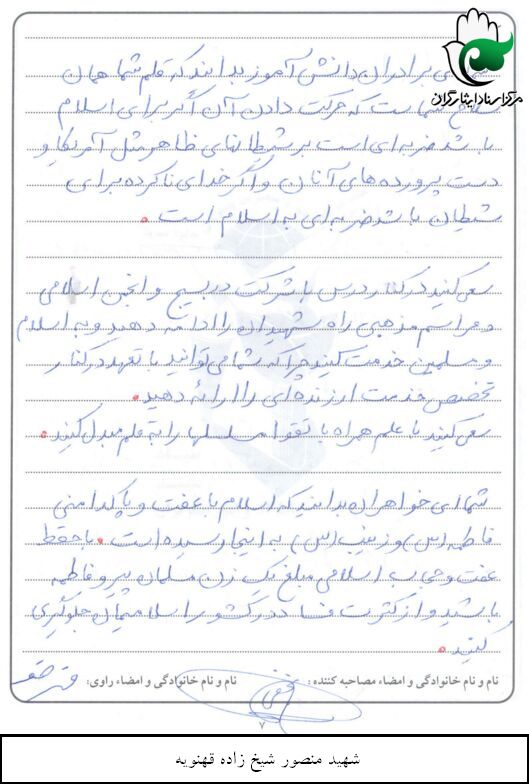 مرکز اسناد ایثارگران
برادران دانش آموز بدانند که قلم شما همان
سلاح شماست که حرکت دادن آن اگر برای اسلام
باشد ضربه ای است بر شیطانهای ظاهر مثل آمریکا و
دست پرورده های آنان و اگر خدای ناکرده برای
شیطان باشد ضربه ای به اسلام است.
سعی کنید در کنار درس با شرکت در بسیج و انجمن اسلامی
و مراسم مذهبی راه شهیدان را ادامه دهید و به اسلام
و مسلمین خدمت کنید چرا که شما می توانید با تعهد در کنار
تخصص خدمت ارزنده ای را ارائه دهید.
سعی کنید با علم همراه با تقوا مسلسلها را به قلم مبدل کنید.
شما ای خواهران بدانید که اسلام با عفت و پاکدامنی
فاطمه (س) و زینب (س) به اینجا رسیده است. با حفظ
عفت و حجاب اسلامی مبلغ یک زن مسلمان پیرو فاطمه
باشید و از کثرت فساد در کشور اسلامیمان جلوگیری
کنید.
نام و نام خانوادگی و امضاء مصاحبه کننده :
نام و نام خانوادگی و امضاء راوی:
۷
شهید منصور شیخ زاده قهنویه